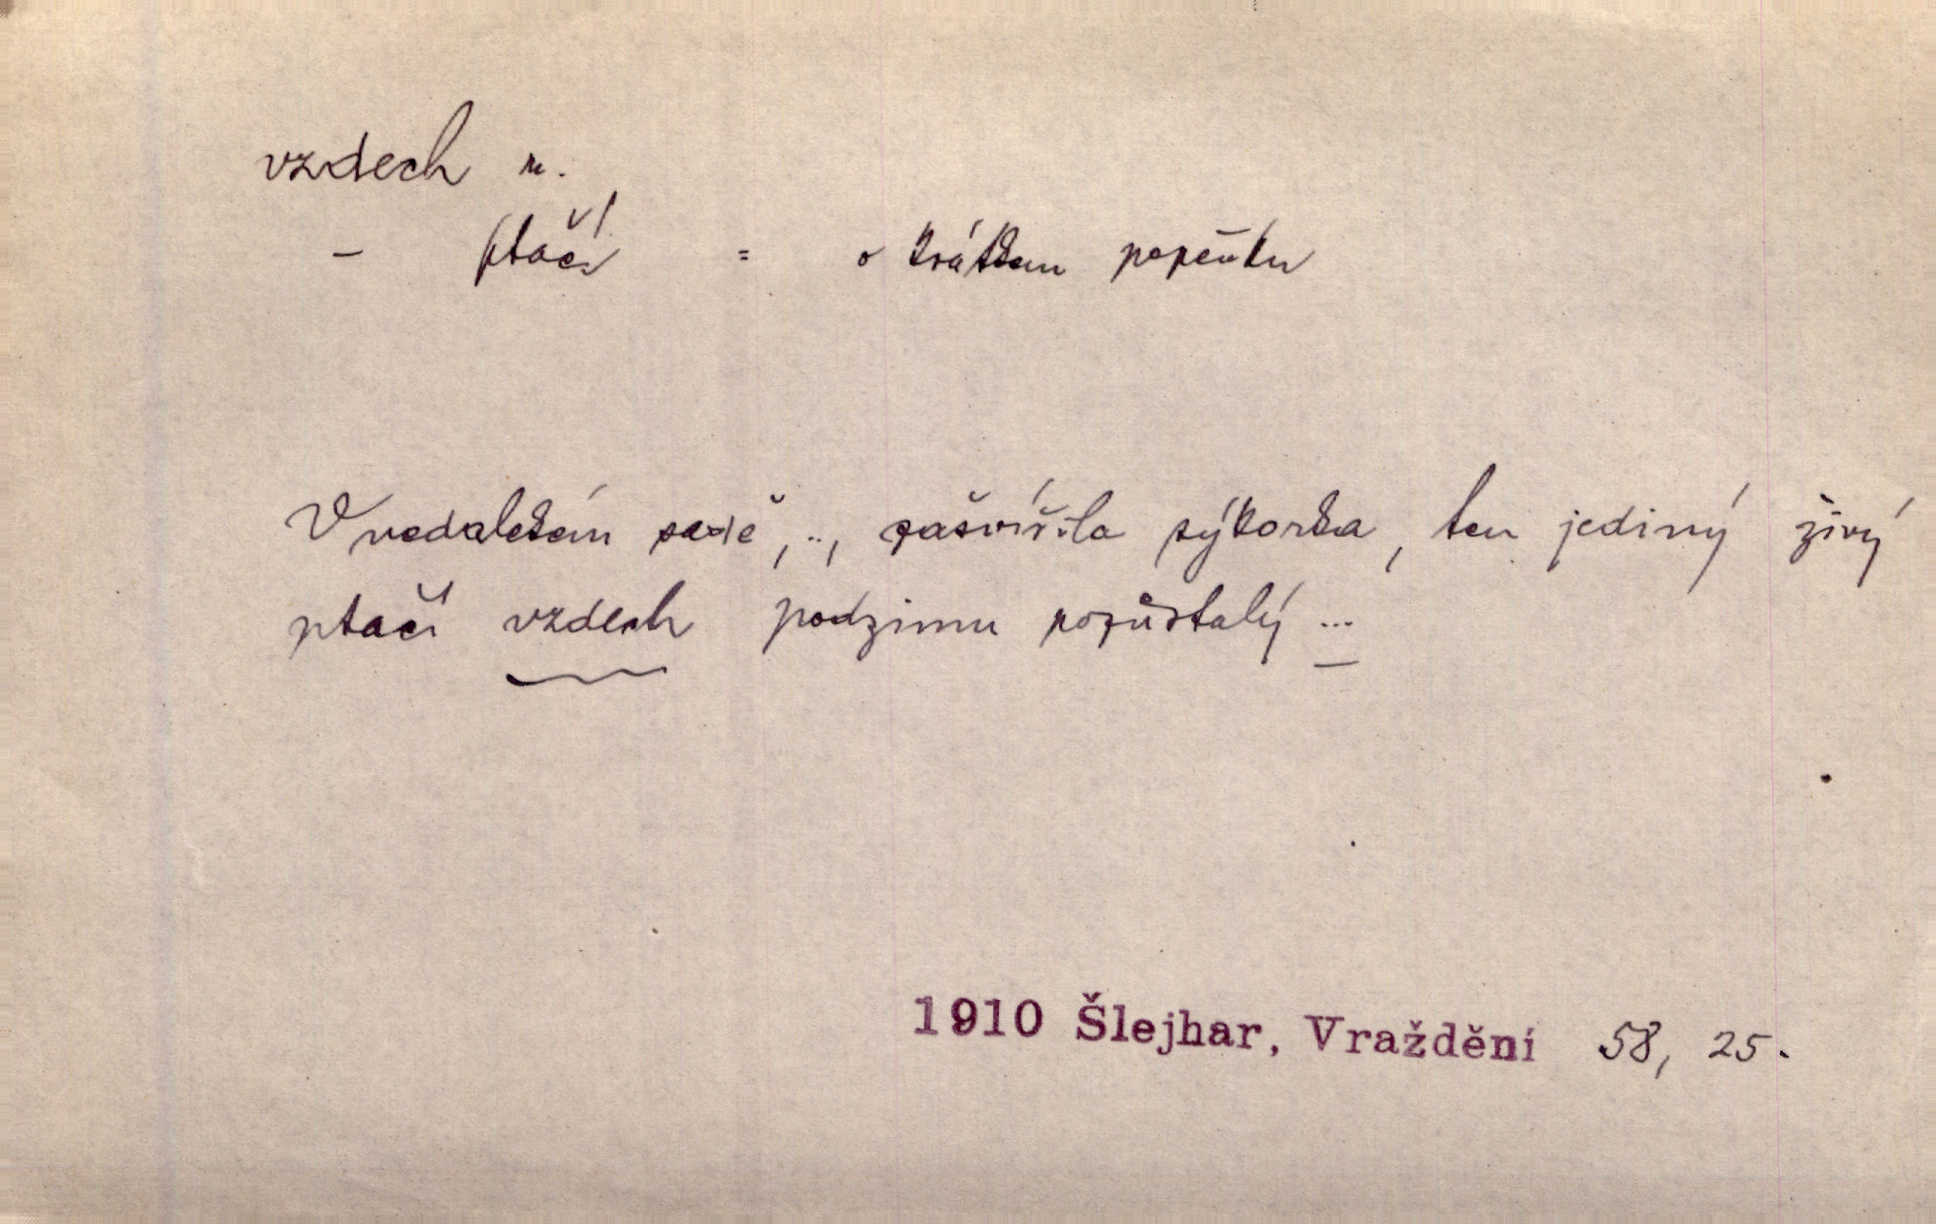 vzdech m.
- ptačí = o krátkém popěvku
V nedalekém sadě, .., zašvířila sýkorka, ten jediný živý
ptačí vzdech podzimu pozůstalý ...
1910 Šlejhar, Vraždění 58, 25.